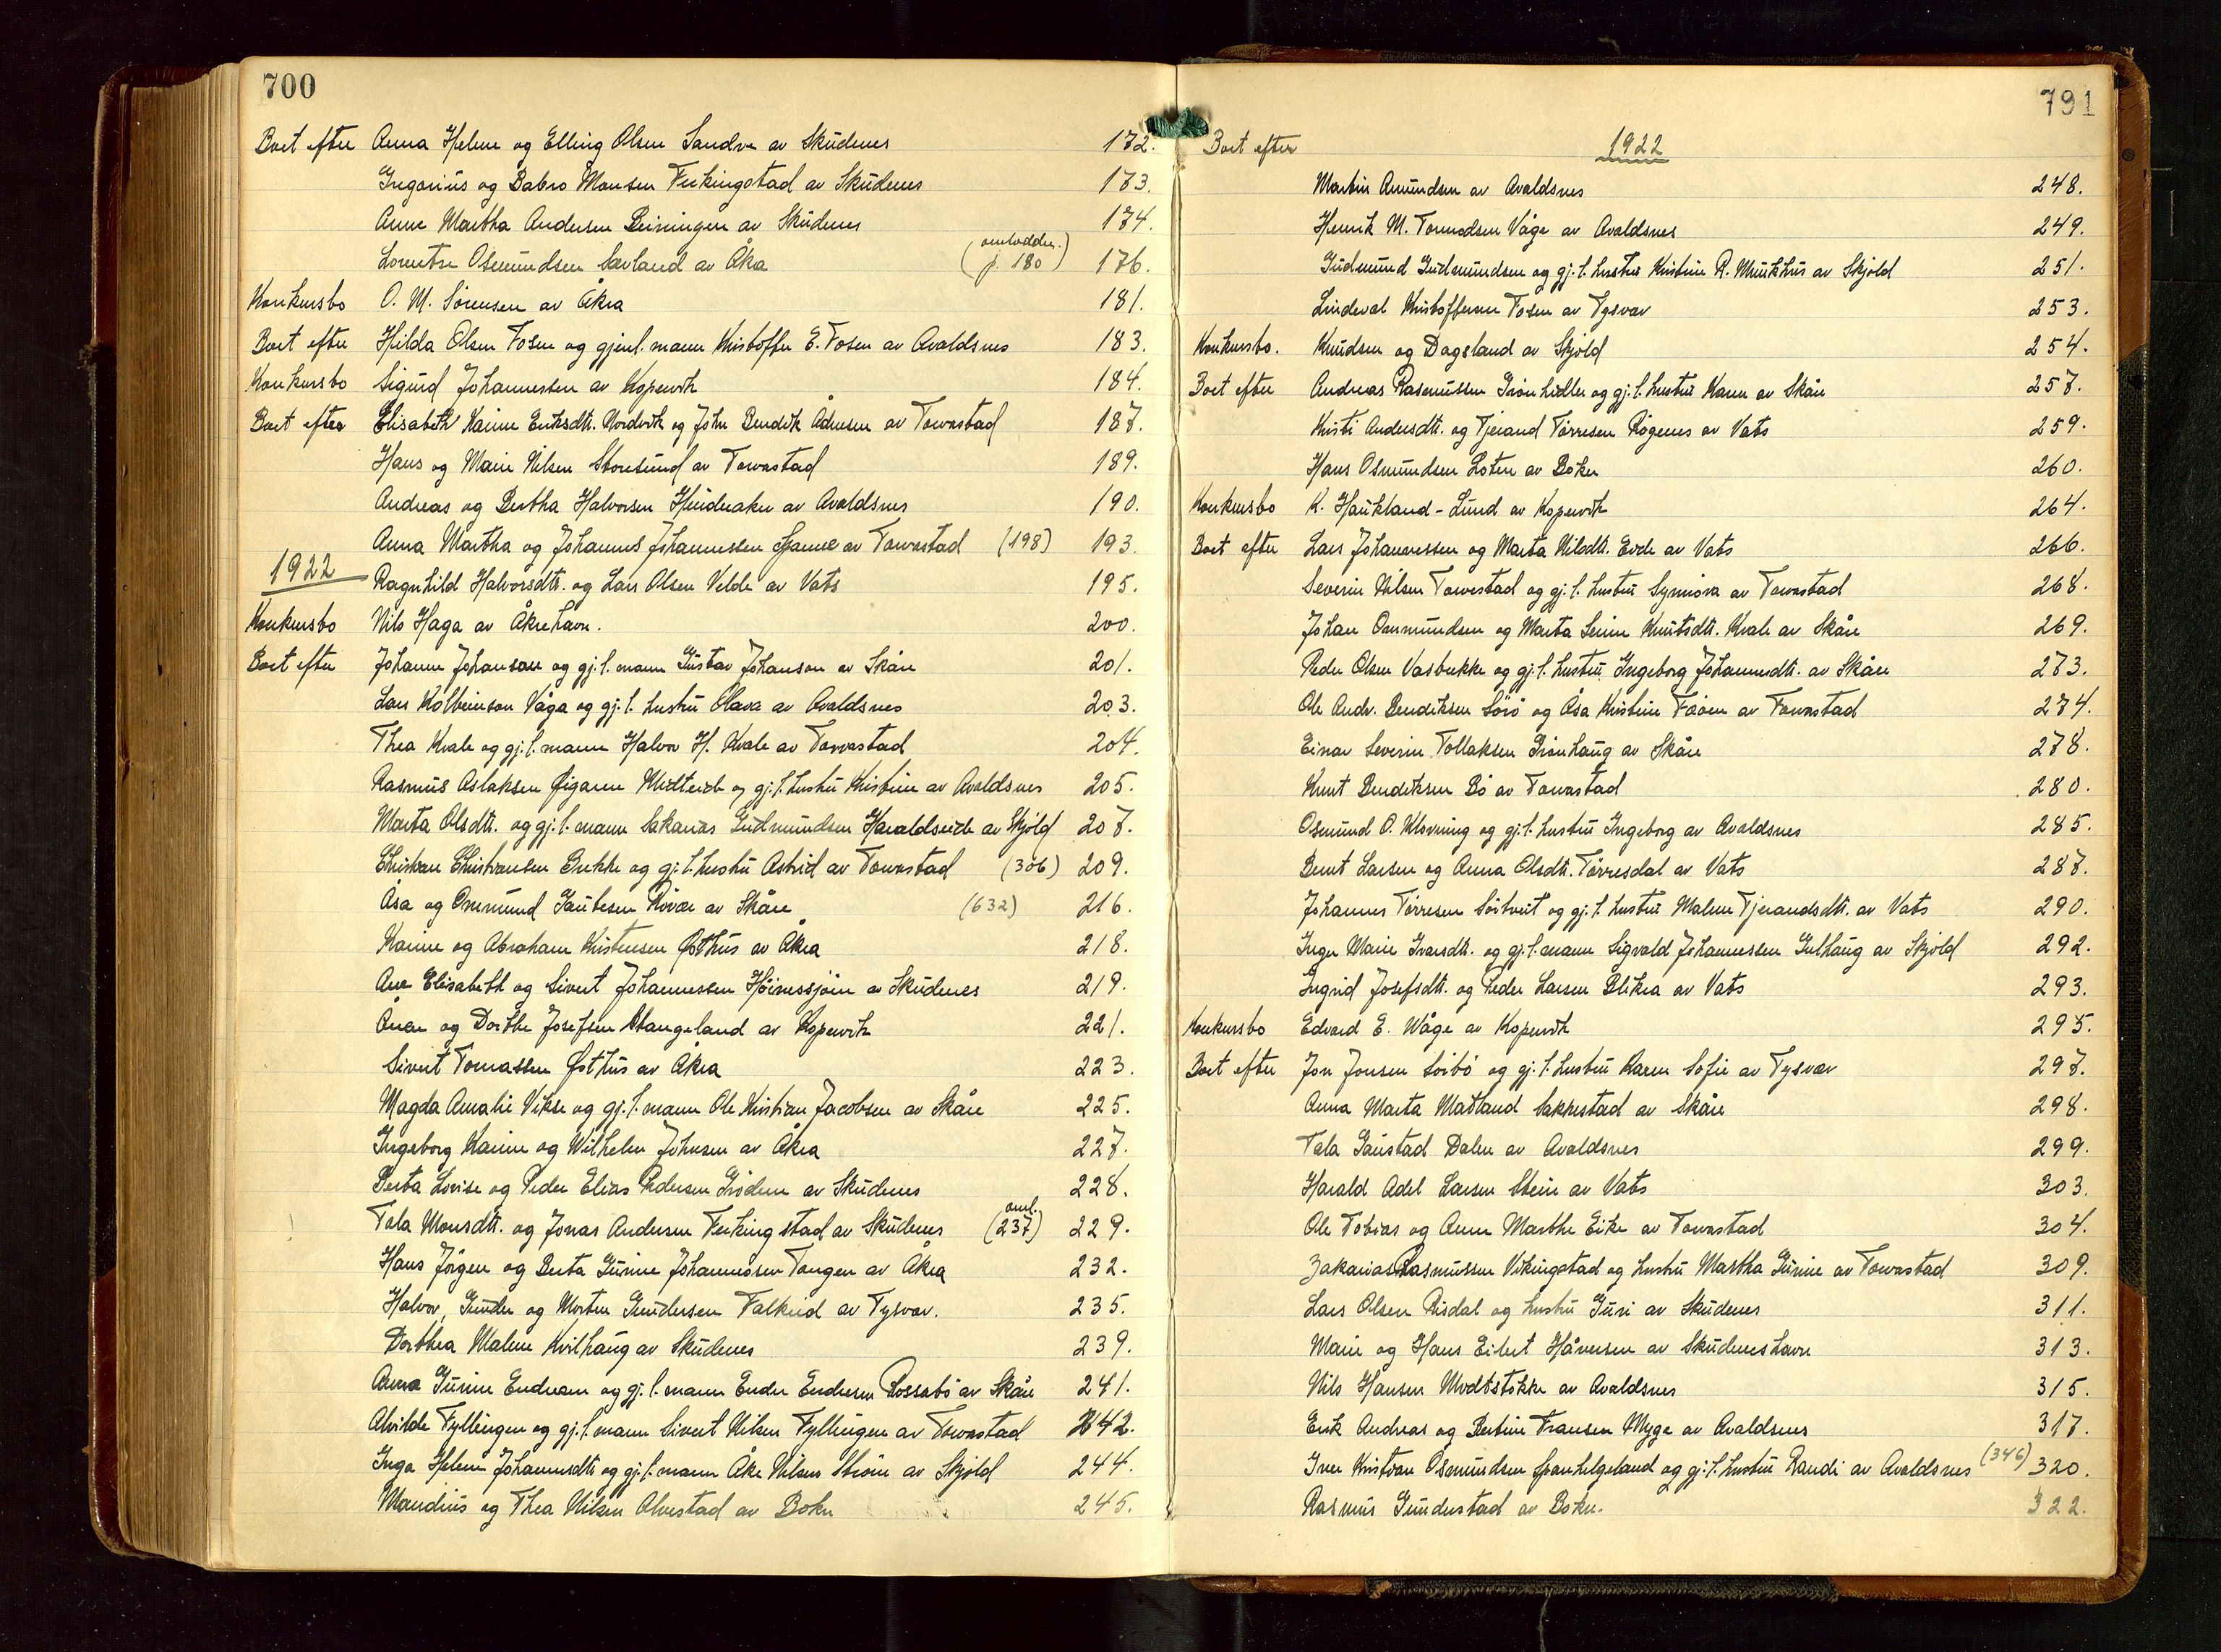 700
Boet efter Anna Helene og Elling Olsen Sandve av Skudenes 172.
Gregorius og Dabro Monsen Ferkingstad av Skudenes 173.
Anne Martha Andersen Beiningen av Skudenes 174.
Lorentse Osmundsen Sævland av Åkra (omlodden. p. 180) 176.
Konkursbo O. M. Sørensen av Åkra 181.
Boet efter Hilda Olsen Fosen og gjenl. mann Kristoffer E. Fosen av Avaldsnes 183.
Konkursbo Sigurd Johannessen av Kopervik 184.
Boet efter Elisabeth Karine Eriksdtr. Nordvik og John Bendik Adnesen av Torvastad 187.
Hans og Marie Nilsen Storesund av Torvastad 189.
Andreas og Bertha Halvorsen Hinderaker av Avaldsnes 190.
Anna Martha og Johannes Johannessen Spanne av Torvastad (198) 193.
1922 Ragnhild Halvorsdtr. og Lars Olsen Velde av Vats 195.
Konkursbo Nils Haga av Åkrehavn. 200.
Boet efter Johanne Johansen og gj. l. mann Gustav Johanson av Skåre 201.
Lars Kolbeinson Våga og gj. l. hustru Olava av Avaldsnes 203.
Thea Kvale og gj. l. mann Halvor H. Kvale av Torvastad 204.
Rasmus Aslaksen Øigaren Midteide og gj. l. hustru Kristine av Avaldsnes 205.
Marta Olsdtr. og gj. l. mann Sakarias Gudmundsen Haraldseide av Skjold 207.
Christian Christiansen Bukke og gj. l. hustru Astrid av Torvastad (306) 209.
Åsa og Ommund Gautesen Røvær av Skåre (632) 216.
Karine og Abraham Kristensen Østhus av Åkra 218.
Ane Elisabeth og Sivert Johannessen Høinessjøen av Skudenes 219.
og Dorthe Josefsen Stangeland av Kopervik 221.
Sivert Tomassen Østhus av Åkra 223.
Magda Amalie Vikse og gj. l. mann Ole Kristian Jacobsen av Skåre 225.
Ingeborg Karine og Wilhelm Johnsen av Åkra 227.
Berta Lovise og Peder Elias Pedersen Grødem av Skudenes 228.
Tala Monsdtr. og Jonas Andersen Ferkingstad av Skudenes (oml. 237) 229.
Hans Jørgen og Berta Gurine Johannessen Tangen av Åkra 232.
Halvor, Gunder og Morten Gundersen Falkeid av Tysvær. 235.
Dorthea Malene Kvilhaug av Skudenes 239.
Anna Gurine Endresen og gj. l. mann Ender Endresen Rossabø av Skåre 241.
Alvilde Fyllingen og gj. l. mann Sivert Nilsen Fyllingen av Torvastad 242.
Inga Helene Johannesdtr. og gj. l. mann Åke Nilsen Strøm av Skjold 244.
Mandius og Thea Nilsen Alvestad av Bokn 245.
791
Boet efter 1922
Martin Amundsen av Avaldsnes 248.
Henrik M. Tormodsen Våge av Avaldsnes 249.
Gudmund Gudmundsen og gj. l. hustru Kristine R. Munkhus av Skjold 251.
Lindeval Kristoffersen Fosen av Tysvær 253.
Konkursbo. Knudsen og Dagsland av Skjold 254.
Boet efter Andreas Rasmussen Grønhidler og gj. l. hustru Karen av Skåre 257.
Kristi Andersdtr. og Tjerand Tørresen Røgenes av Vats 259.
Hans Osmundsen Loten av Bokn 260.
Konkursbo K. Haukland-Lund av Kopervik 264.
Boet efter Lars Johannessen og Marta Nilsdtr. Eide av Vats 266.
Severin Nilsen Torvestad og gj. l. hustru Synnøva av Torvastad 268.
Johan Ommundsen og Marta Serine Knutsdtr. Kvale av Skåre 269.
Peder Olsen Vasbrekke og gj. l. hustru Ingeborg Johannesdtr. av Skåre 273.
Ole Andr. Bendiksen Sørø og Åsa Kristine Fæøen av Torvastad 274.
Einar Severin Tollaksen Grønhaug av Skåre 278.
Knut Bendiksen Bø av Torvastad 280.
Osmund O. Kløvning og gj. l. hustru Ingeborg av Avaldsnes 285.
Bernt Larsen og Anna Olsdtr. Tørresdal av Vats 287.
Johannes Tørresen Søitveit og gj. l. hustru Malene Tjerandsdtr. av Vats 290.
Inger Marie Ivarsdtr. og gj. l. mann Sigvald Johannessen Gulhaug av Skjold 292.
Ingrid Josefsdtr. og Peder Larsen Blikra av Vats 293.
Konkursbo Edvard E. Wåge av Kopervik 295.
Boet efter Jon Jonsen Soibø og gj. l. hustru Karen Sofie av Tysvær 297.
Anna Marta Matland Sakkestad av Skåre 298.
Tala Gaustad Dalen av Avaldsnes 299.
Harald Adel Larsen Stein av Vats 303.
Ole Tobias og Anne Marthe Eike av Torvastad 304.
Zakarias Rasmussen Vikingstad og hustru Martha Gurine av Torvastad 309.
Lars Olsen Risdal og hustru Guri av Skudenes 311.
Marie og Hans Eilert Håversen av Skudeneshavn 313.
Nils Hansen Midtstokke av Avaldsnes 315.
Erik Andreas og Bertine Fransen Myge av Avaldsnes 317.
Iver Kristian Osmundsen Spanhelgeland og gj. l. hustru Randi av Avaldsnes (346) 320.
Rasmus Gunderstad av Bokn. 322.